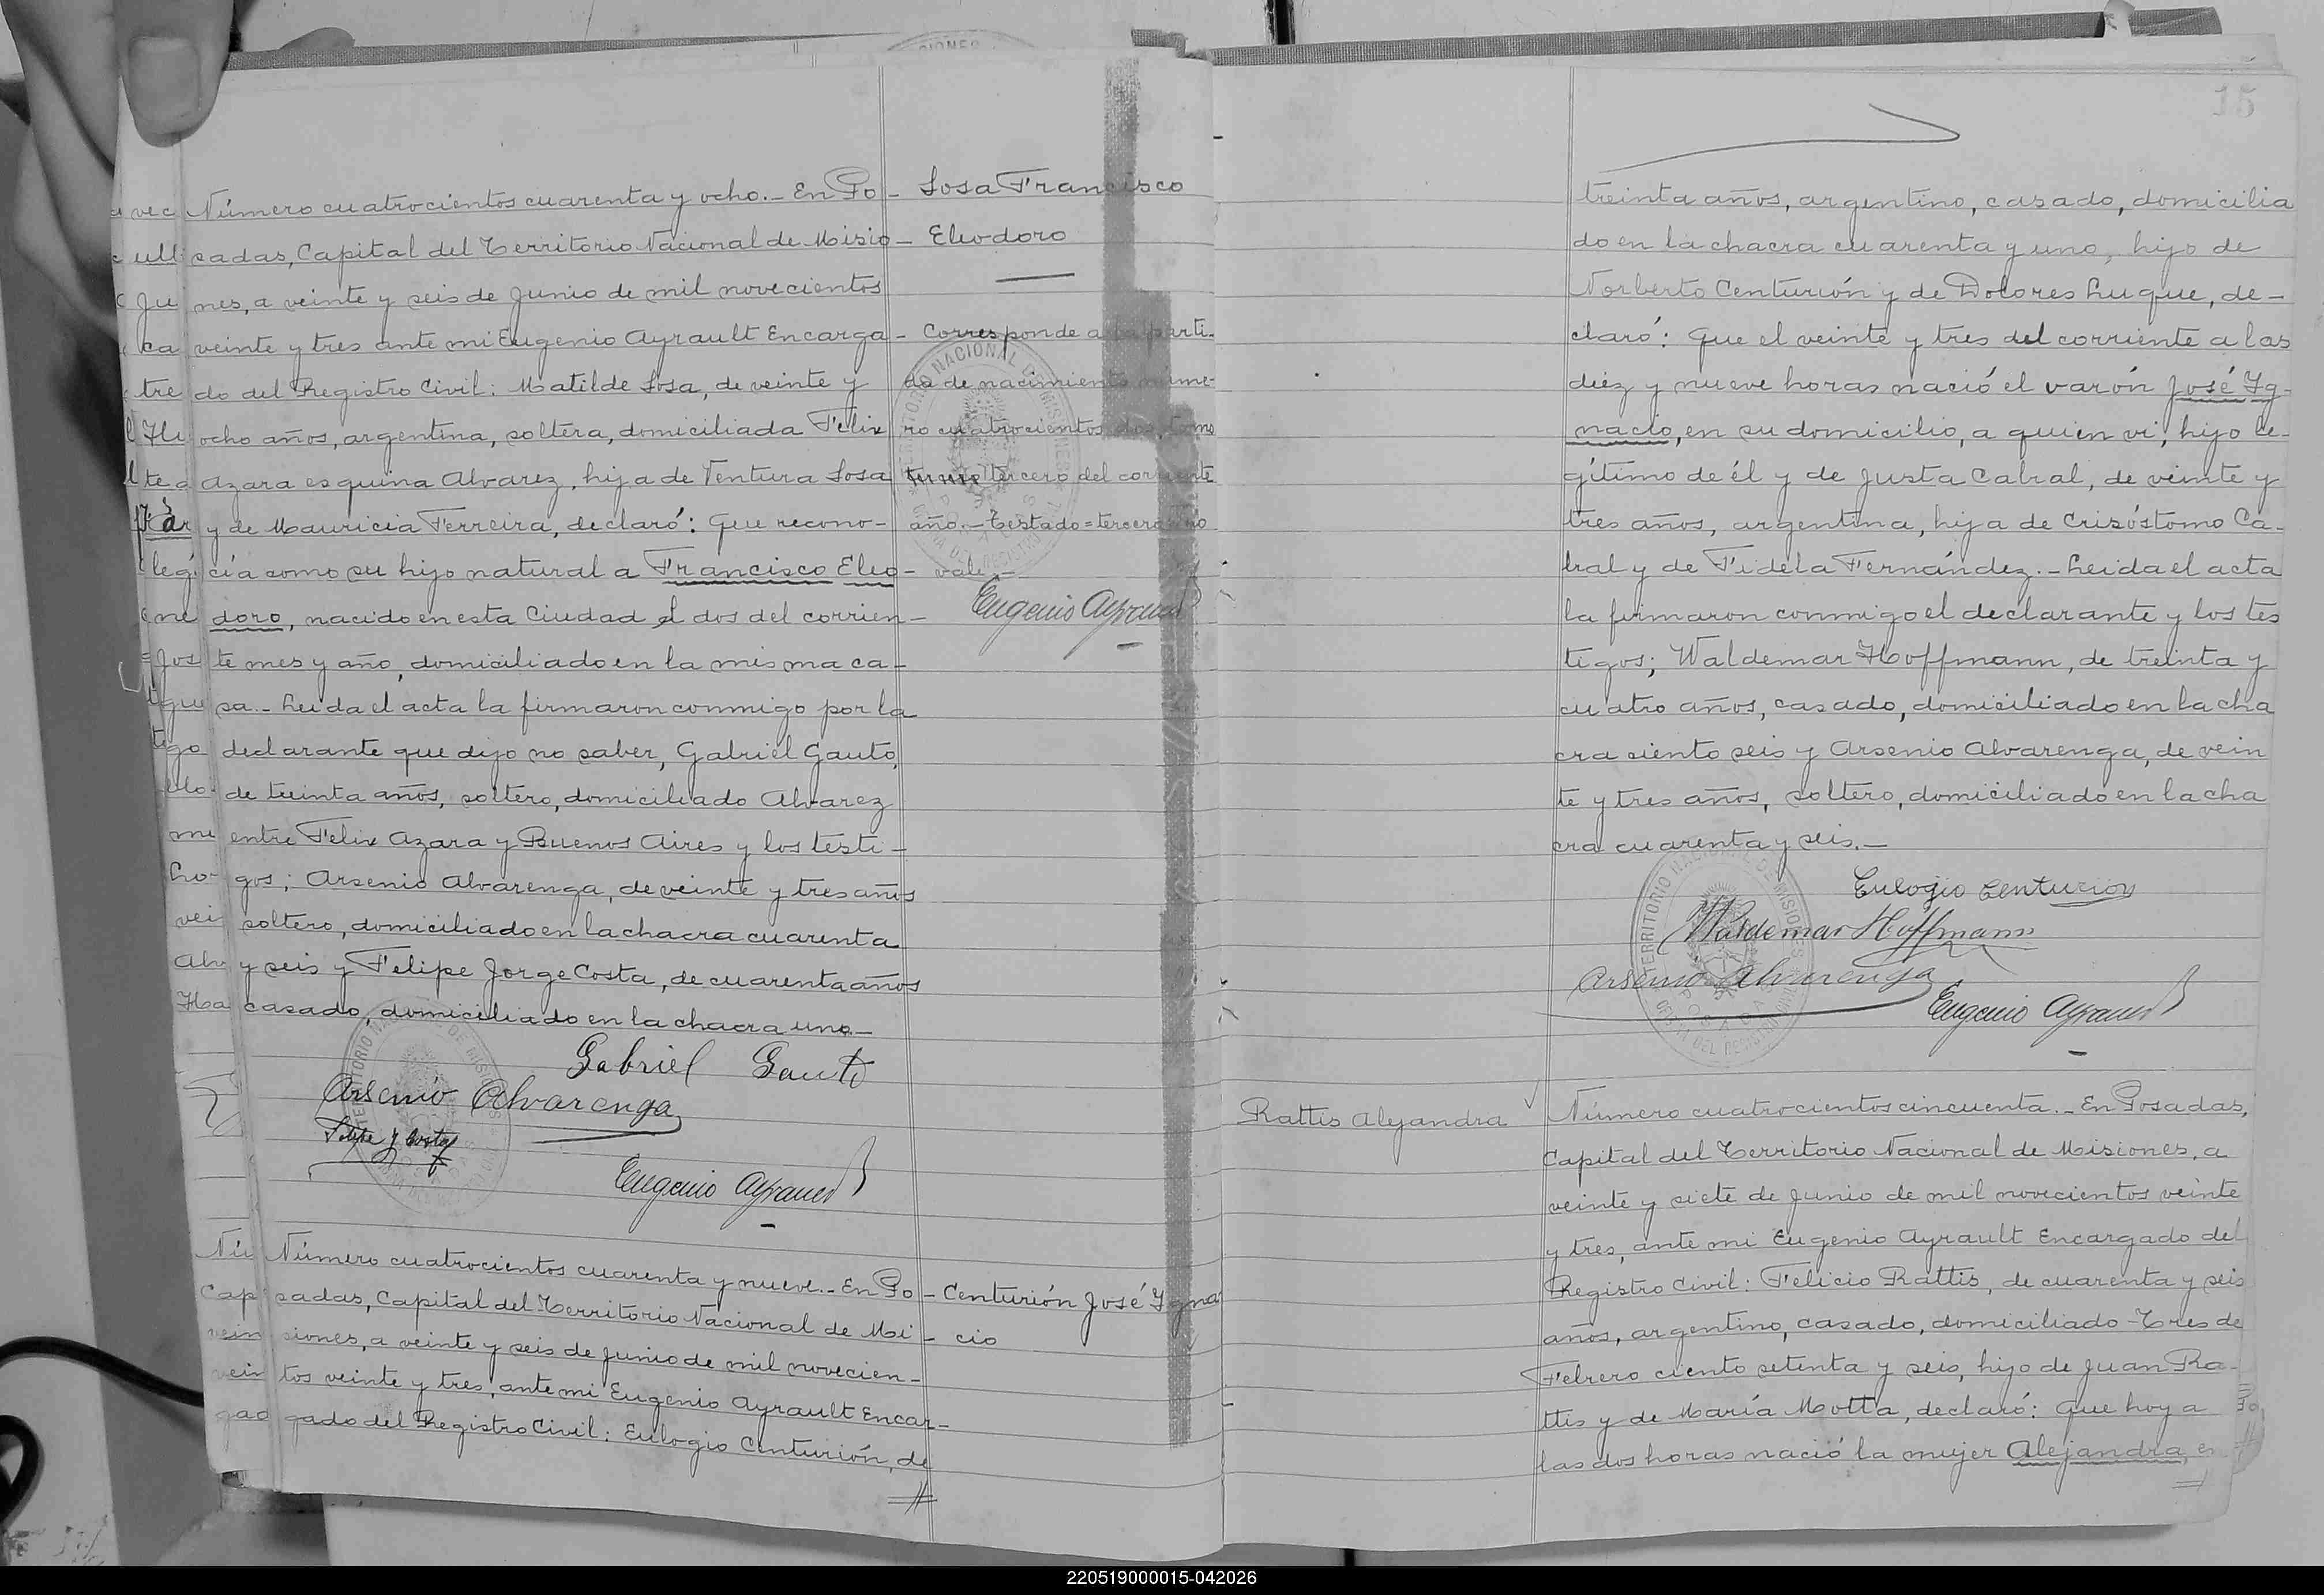 Número cuatrocientos cuarenta y ocho.- En Po-
sadas, Capital del Territorio Nacional de Misio-
nes, a veinte y seis de Junio de mil novecientos
veinte y tres ante mi Eugenio Ayrault Encarga-
do del Registro Civil: Matilde Sosa, de veinte y
ocho años, argentina, soltera, domiciliada Felix
Azara esquina Alvarez, hija de Ventura Sosa
y de Mauricia Ferreira, declaró: Que recono-
cía como su hijo natural a Francisco Eleo-
doro, nacido en esta Ciudad el dos del corrien-
te mes y año, domiciliado en la misma ca-
sa.- Leida el acta la firmaron conmigo por la
declarante que dijo no saber, Gabriel Gauto,
de treinta años, soltero, domiciliado Alvarez
entre Felix Azara y Buenos Aires y los testi-
gos; Arsenio Alvarenga, de veinte y tres años
soltero, domiciliado en la chacra cuarenta
y seis y Felipe Jorge Costa, de cuarenta años
casado, domiciliado en la chacra uno.-
Gabriel Gauto
Arsenio Alvarenga
Felipe J Costa
Eugenio Ayrault
Sosa Francisco
Eleodoro
Corresponde a la parti-
da de nacimiento núme-
ro cuatrocientos dos, tomo
tercero del corriente
año.- Testado=tercero=no
vale.-
Eugenio Ayrault
Número cuatrocientos cuarenta y nueve.- En Po-
sadas, Capital del Territorio Nacional de Mi-
siones, a veinte y seis de Junio de mil novecien-
tos veinte y tres, ante mi Eugenio Ayrault Encar-
gado del Registro Civil: Eulogio Centurión, de
Centurión José Ygna
cio
15
treinta años, argentino, casado, domicilia
do en la chacra cuarenta y uno, hijo de
Norberto Centurión y de Dolores Luque, de-
claró: Que el veinte y tres del corriente a las
diez y nueve horas nació el varón José Yg-
nacio, en su domicilio, a quien vi, hijo le-
gítimo de él y de Justa Cabral, de veinte y
tres años, argentina, hija de Crisóstomo Ca-
bral y de Fidela Fernández.- Leida el acta
la firmaron conmigo el declarante y los tes
tigos; Waldemar Hoffmann, de treinta y
cuatro años, casado, domiciliado en la cha
cra siento seis y Arsenio Alvarenga, de vein
te y tres años, soltero, domiciliado en la cha
cra cuarenta y seis.-
Eulogio Centurion
Waldemar Hoffmann
Arsenio Alvarenga
Eugenio Ayrault
Rattis Alejandra
Número cuatrocientos cincuenta.- En Posadas,
Capital del Territorio Nacional de Misiones, a
veinte y siete de Junio de mil novecientos veinte
y tres, ante mi Eugenio Ayrault Encargado del
Registro Civil: Felicio Rattis, de cuarenta y seis
años, argentino, casado, domiciliado Tres de
Febrero ciento setenta y seis, hijo de Juan Ra-
ttis y de María Motta, declaró: Que hoy a
las dos horas nació la mujer Alejandra, en
220519000015-042026